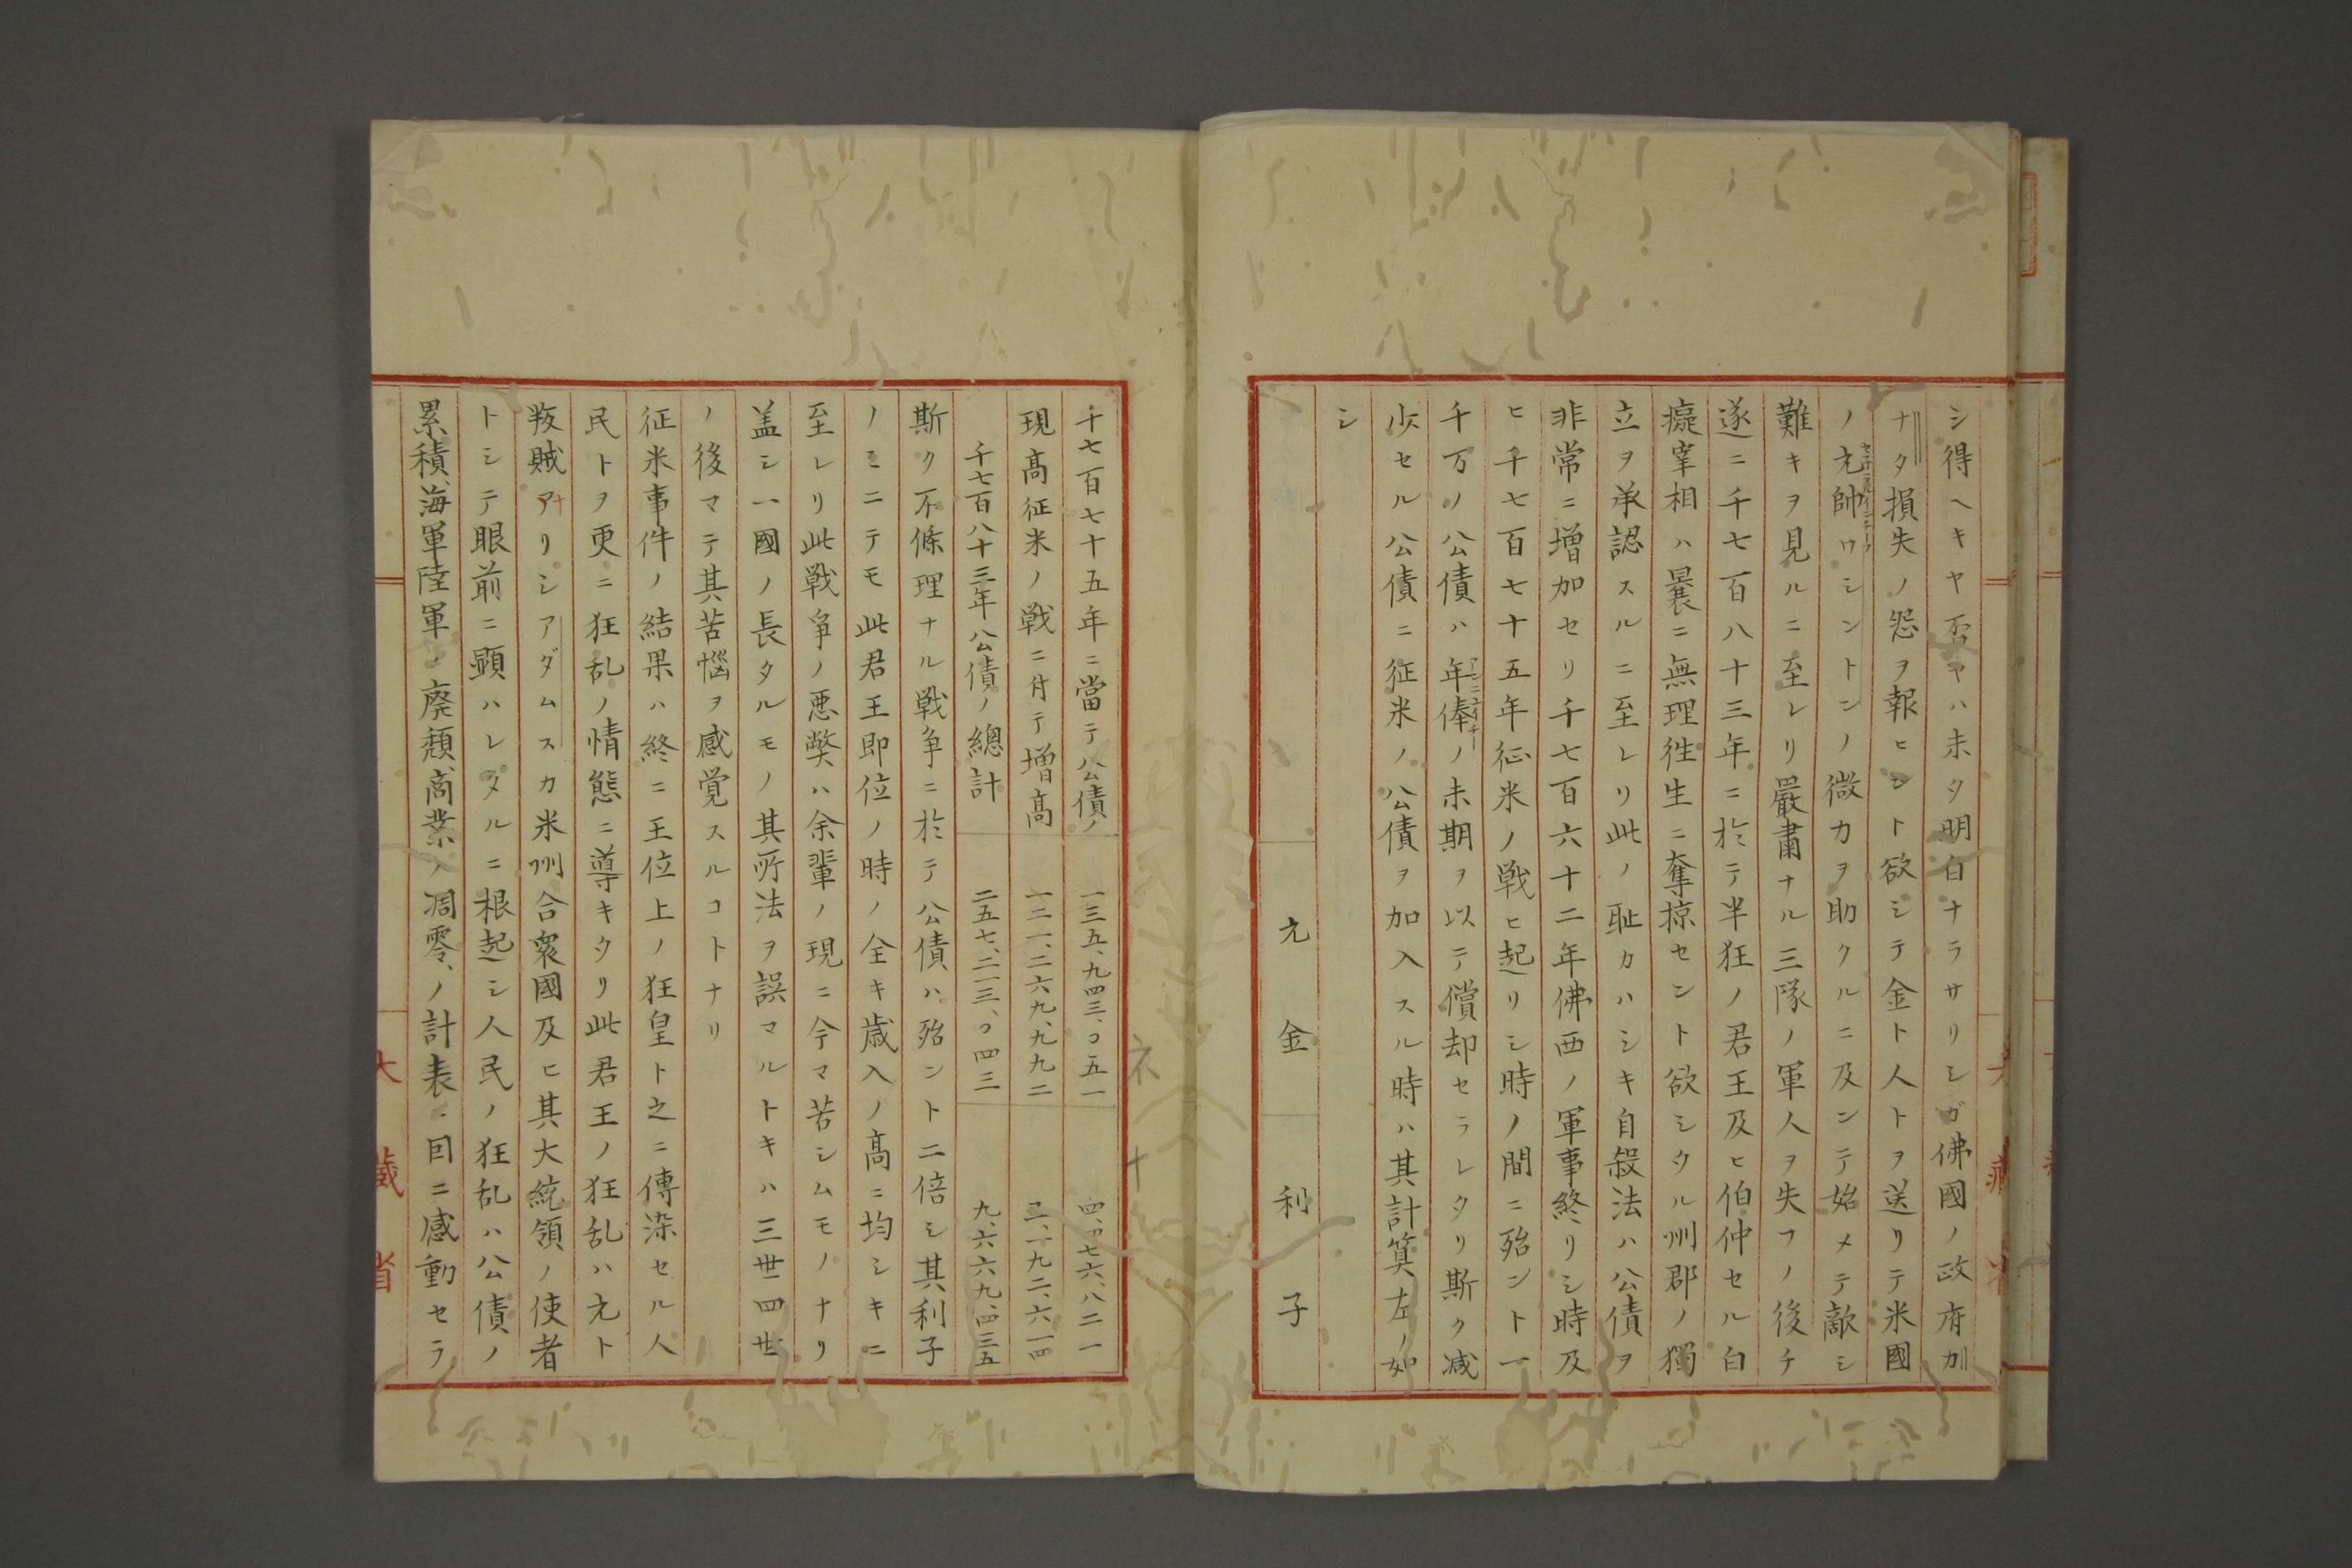 シ得ヘキヤ否ヤハ未タ明白ナラサリシガ佛國ノ政府カ
ナタ損失ノ怨ヲ報ヒント欲シテ金ト人トヲ送リテ米國
ノ元帥ワシントンノ微力ヲ助クルニ及ンテ始メテ敵シ
難キヲ見ルニ至レリ嚴肅ナル三隊ノ軍人ヲ失フノ後チ
遂ニ千七百八十三年ニ於テ半狂ノ君王及ヒ伯仲セル白
癡宰相ハ曩ニ無理徃生ニ奪掠セント欲シタル州郡ノ獨
立ヲ承認スルニ至レリ此ノ耻カハシキ自殺法ハ公債ヲ
非常ニ増加セリ千七百六十二年佛西ノ軍事終リシ時及
ヒ千七百七十五年征米ノ戦ヒ起リシ時ノ間ニ殆ント一
千万ノ公債ハ年俸ノ未期ヲ以テ償却セラレタリ斯ク减
少セル公債ニ征米ノ公債ヲ加入スル時ハ其計算左ノ如
シ
元金 利子
千七百七十五年ニ當テ公債ノ 一三五、九四三、〇五一 四、四七六、八二一
現髙征米ノ戦ニ付テ増髙 一二一、二六九、九九二 五、一九二、六一四
千七百八十三年公債ノ總計 二五七、二一三、〇四三 九、六六九、四三五
斯ク不條理ナル戦争ニ於テ公債ハ殆ント二倍シ其利子
ノミニテモ此君王即位ノ時ノ全キ歳入ノ髙ニ均シキニ
至レリ此戦爭ノ悪獘ハ余輩ノ現ニ今マ苦シムモノナリ
盖シ一國ノ長タルモノ其所法ヲ誤マルトキハ三世四世
ノ後マテ其苦悩ヲ感覚スルコトナリ
征米事件ノ結果ハ終ニ王位上ノ狂皇ト之ニ傳染セル人
民トヲ更ニ狂乱ノ情態ニ導キタリ此君王ノ狂乱ハ元ト
叛賊ナリシアダムスカ米州合衆國及ヒ其大統領ノ使者
トシテ眼前ニ顕ハレタルニ根起シ人民ノ狂乱ハ公債ノ
累積、海軍陸軍ノ廃頽、商業ノ凋零、ノ計表ニ目ニ感動セラ
大藏省